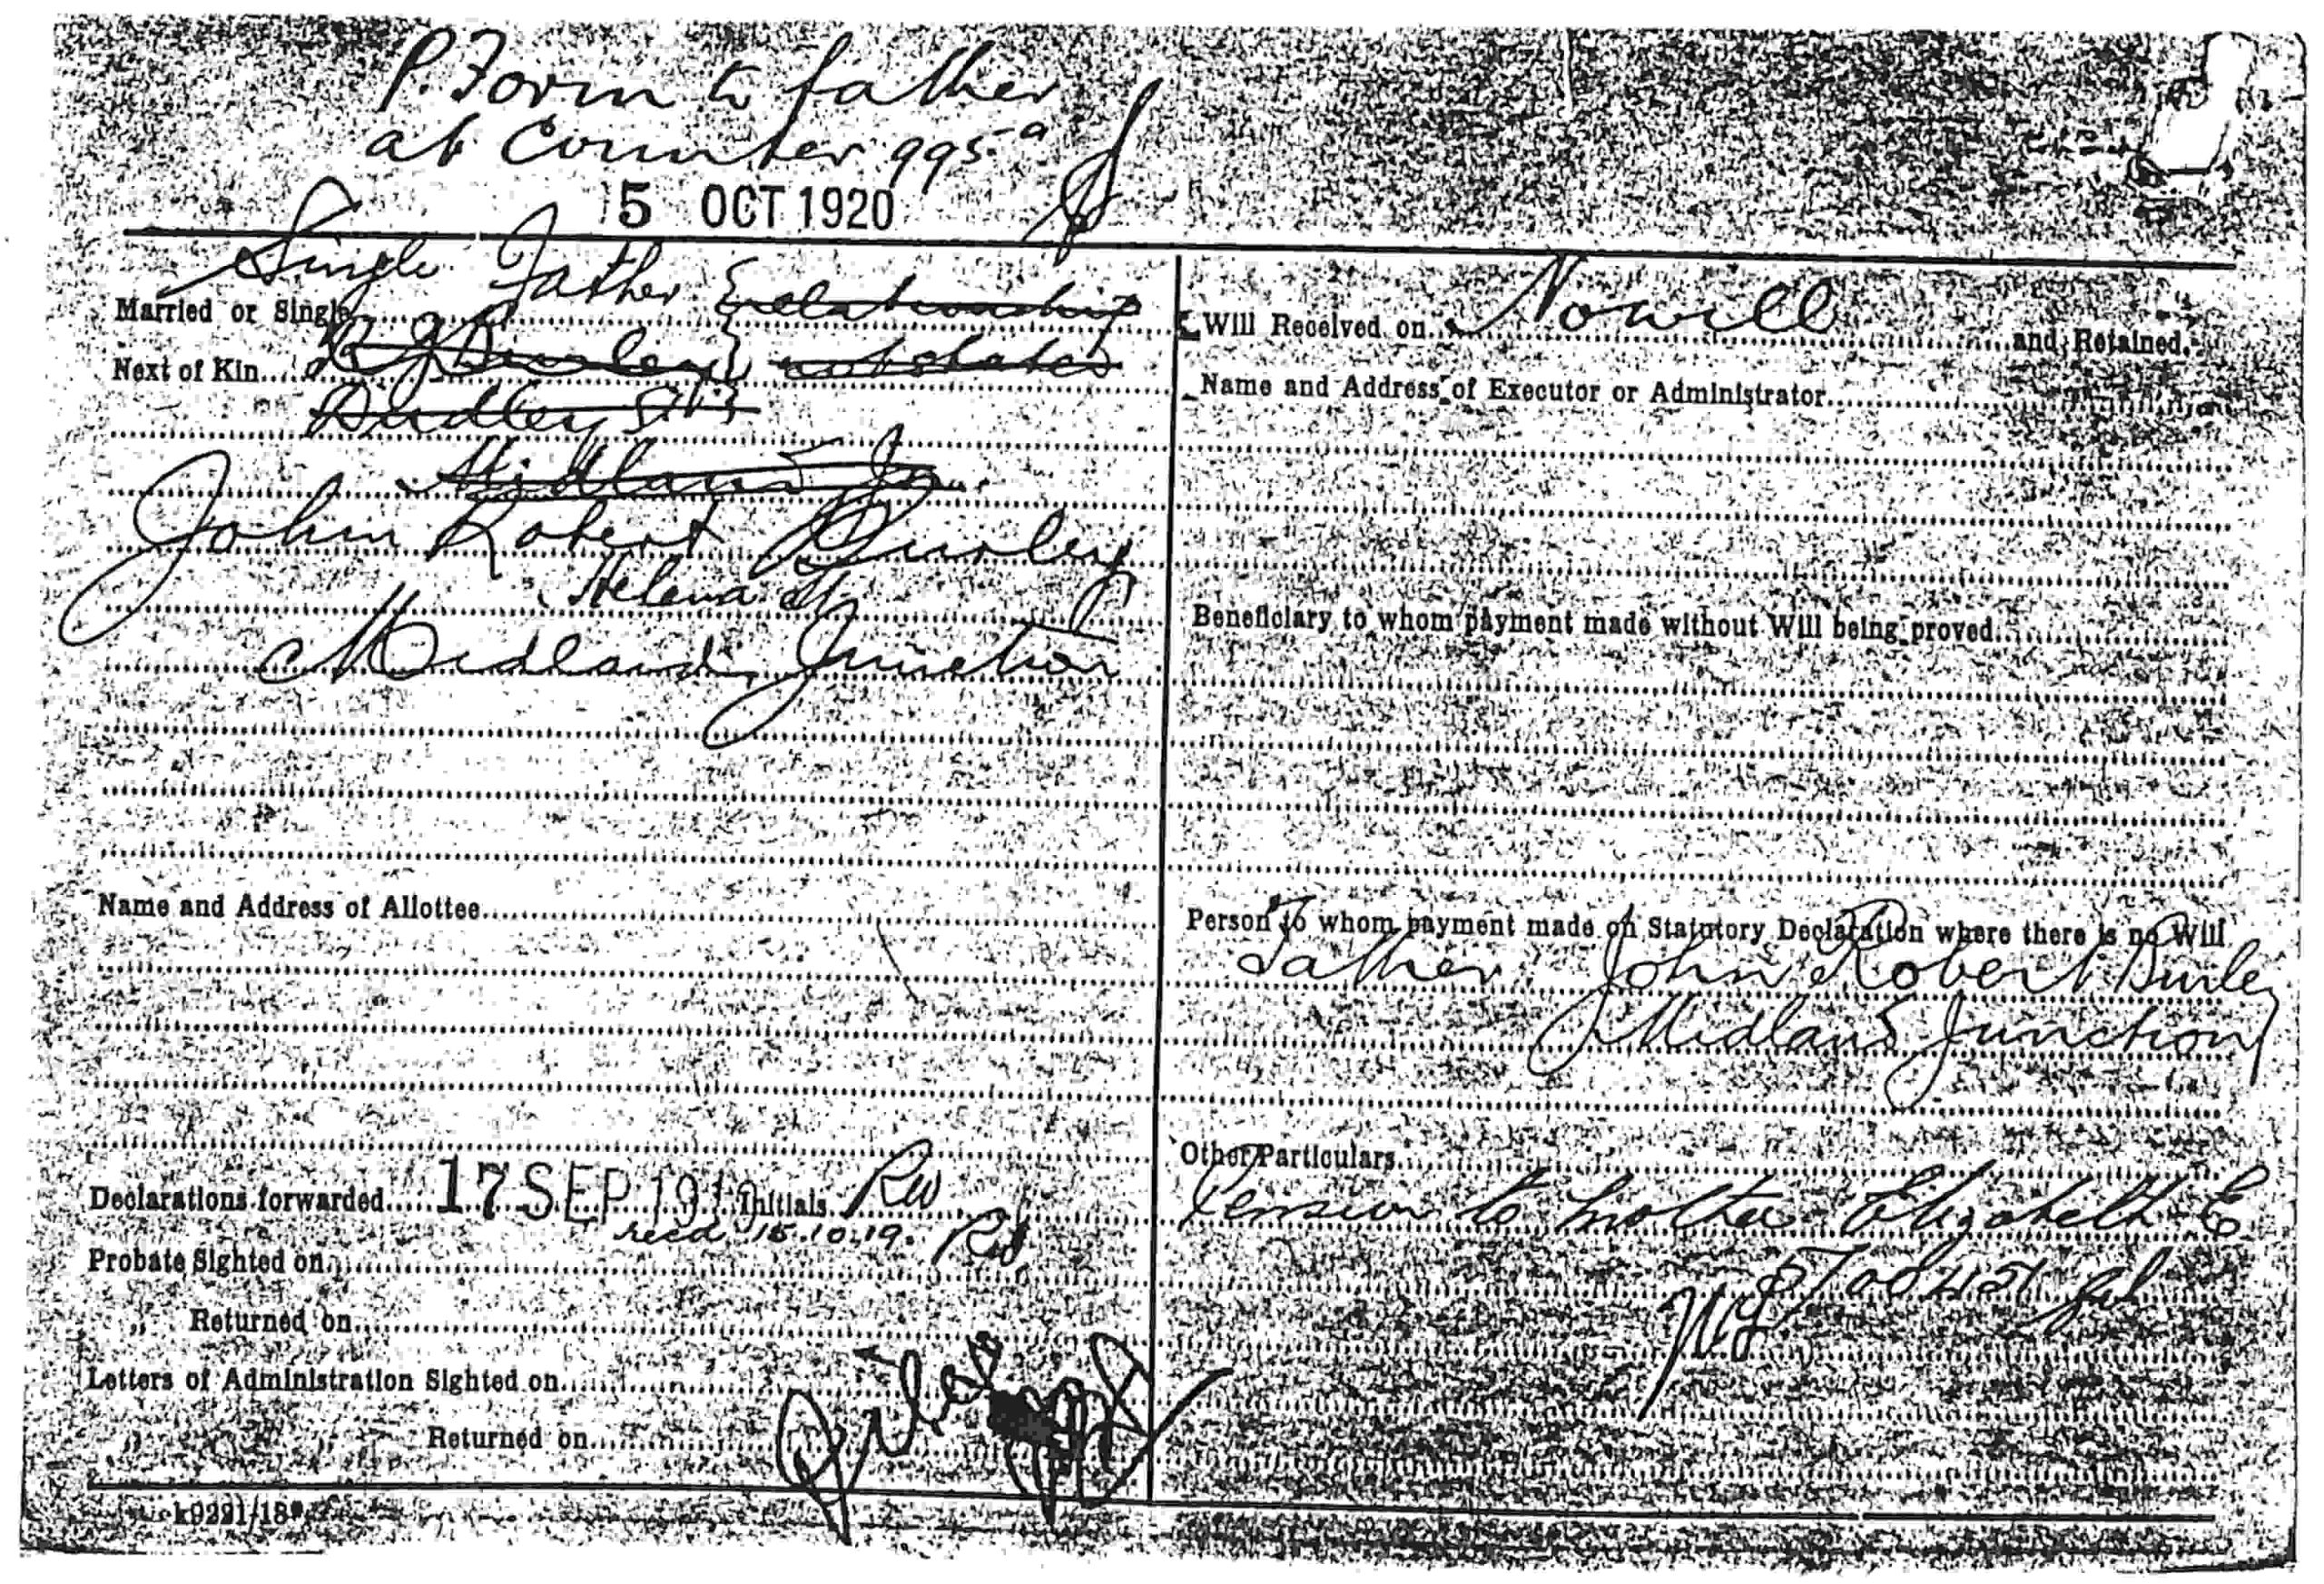 P. Form to father
at Counter 995a
5 OCT 1920
Single Father relationship
Married or Single
Next of Kin J Burley not stated
Dudley St
Midland Jn.
John Robert Burley
Helena St
Midland Junction
Name and Address of Allottee
Declarations forwarded 17 SEP 1919 Initials RW
recd 15.10.19. RW
Probate Sighted on
„ Returned on
Letters of Administration Sighted on
„ „ Returned on
k9221/18
Will Received on Nowill and Retained.
Name and Address of Executor or Administrator
Beneficiary to whom payment made without Will being proved
Person to whom payment made on Statutory Declaration where there is no Will
Father John Robert Burley
Midland Junction
Other Particulars
Pension to mother Elizabeth E